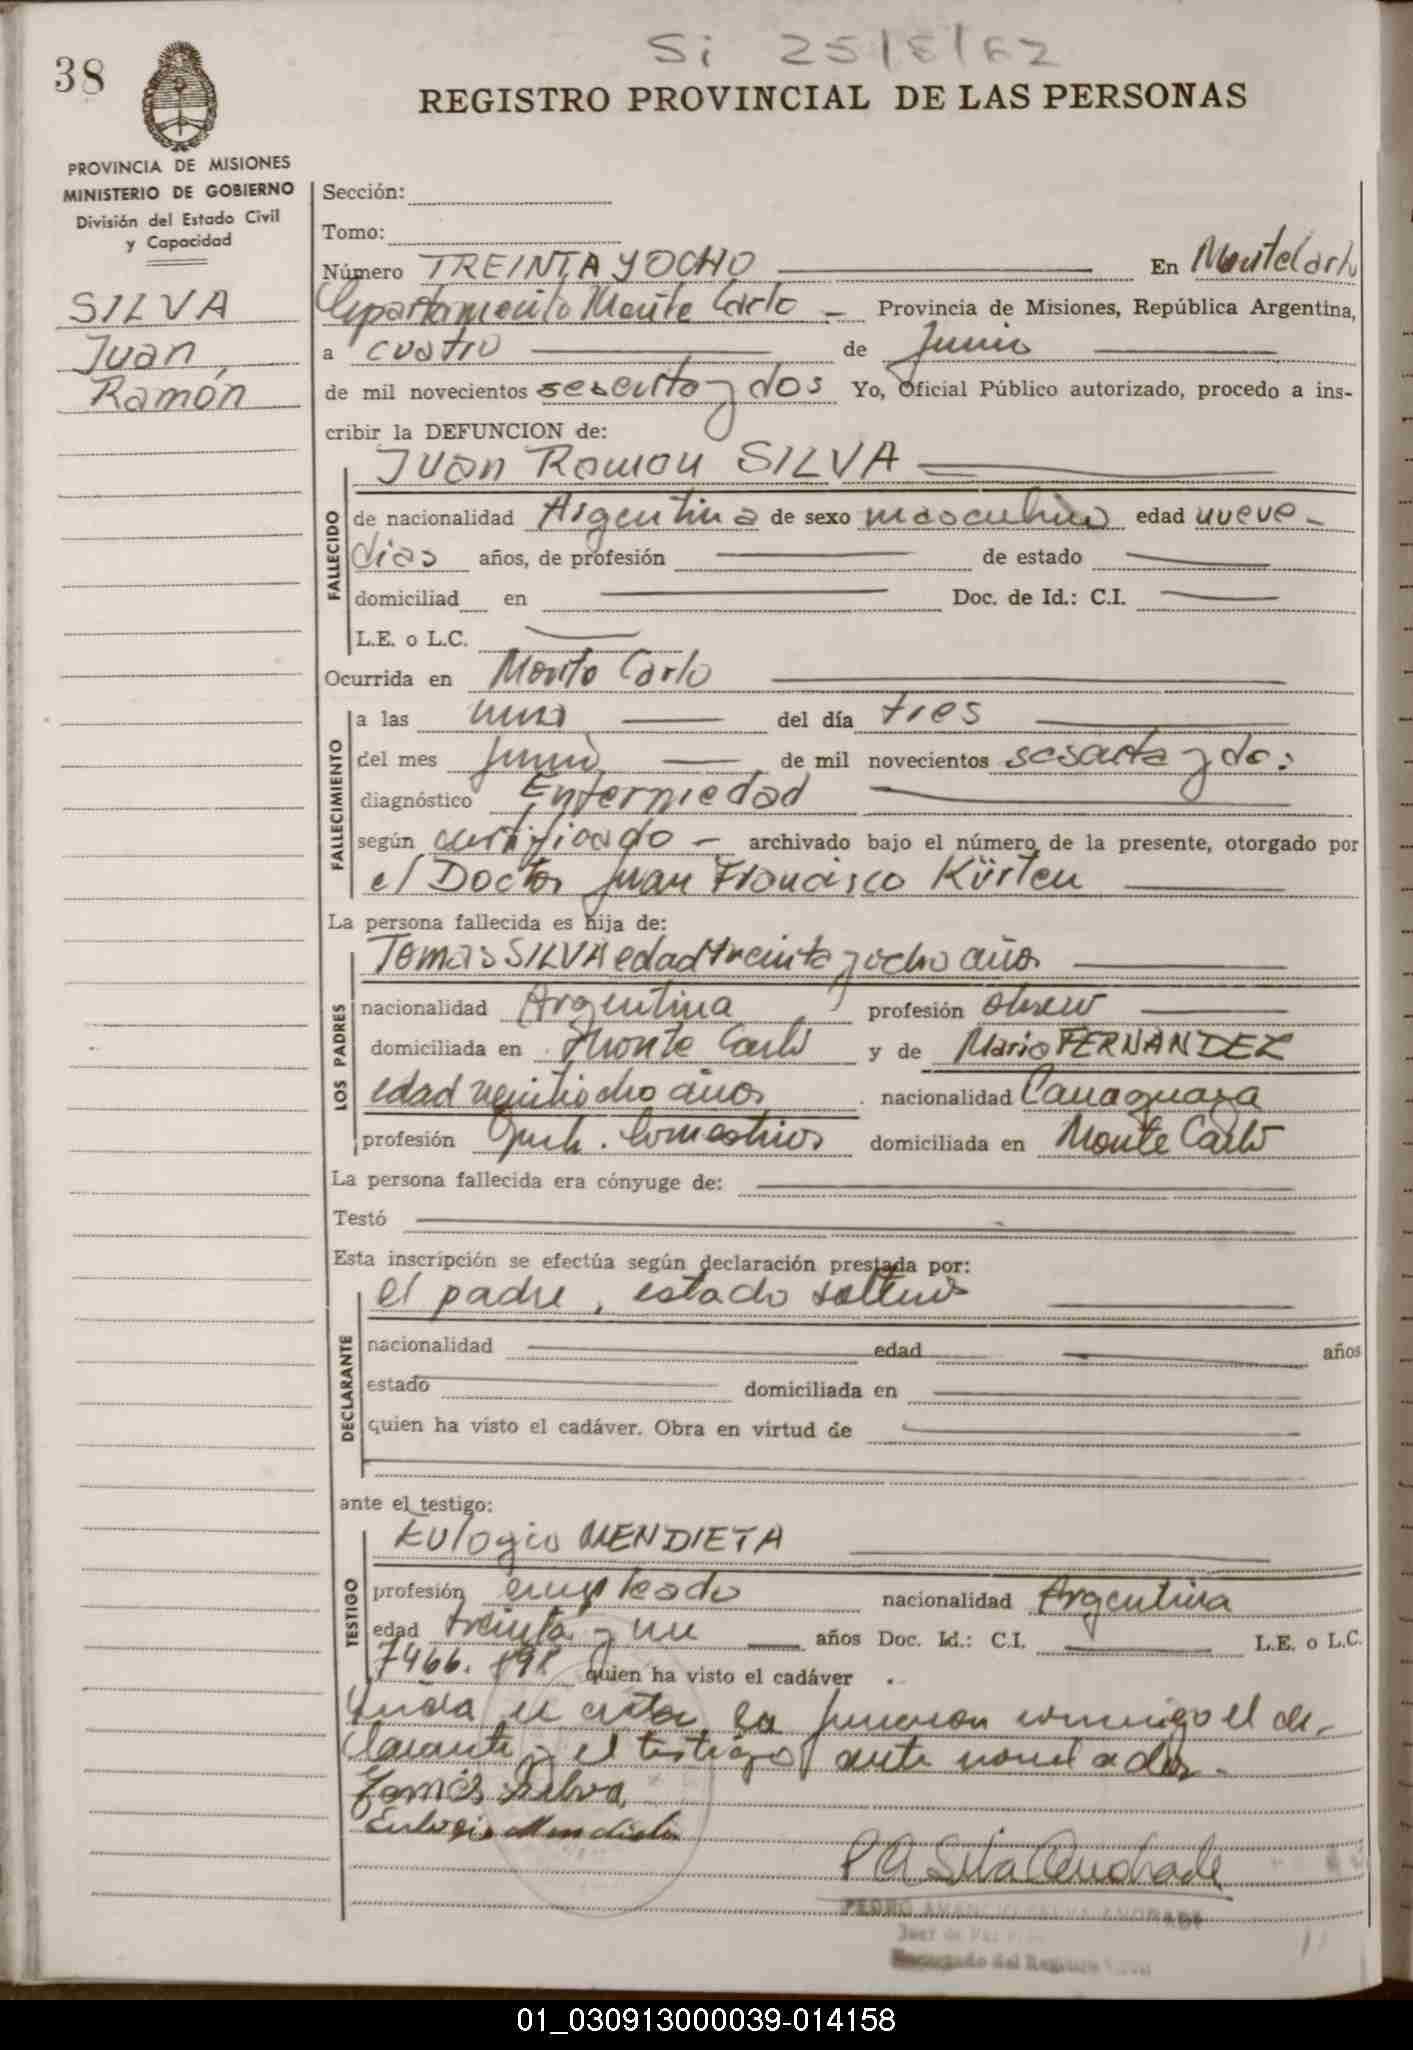 Si 25/5/62
38
REGISTRO PROVINCIAL DE LAS PERSONAS
PROVINCIA DE MISIONES
MINISTERIO DE GOBIERNO
División del Estado Civil
y Capacidad
SILVA
Juan
Ramón
Sección:
Tomo:
Número TREINTA Y OCHO En Monte Carlo
Departamento Monte Carlo - Provincia de Misiones, República Argentina,
a cuatro de Junio
de mil novecientos sesenta y dos Yo, Oficial Público autorizado, procedo a ins-
cribir la DEFUNCION de:
Juan Ramon SILVA
FALLECIDO
de nacionalidad Argentina de sexo masculino edad nueve-
dias años, de profesión de estado
domiciliad en Doc. de Id.: C.I.
L.E. o L.C.
Ocurrida en Monte Carlo
FALLECIMIENTO
a las una del día tres
del mes junio de mil novecientos sesenta y dos
diagnóstico Enfermedad
según certificado - archivado bajo el número de la presente, otorgado por
el Doctor Juan Francisco Kürten
La persona fallecida es hija de:
LOS PADRES
Tomas SILVA edad treinta y ocho años
nacionalidad Argentina profesión obrero
domiciliada en Monte Carlo y de Maria FERNANDEZ
edad veintiocho años nacionalidad
profesión domiciliada en Monte Carlo
La persona fallecida era cónyuge de:
Testó
Esta inscripción se efectúa según declaración prestada por:
DECLARANTE
el padre, estado soltero
nacionalidad edad años
estado domiciliada en
quien ha visto el cadáver. Obra en virtud de
ante el testigo:
TESTIGO
Eulogio MENDIETA
profesión empleado nacionalidad Argentina
edad treinta y un años Doc. Id.: C.I. L.E. o L.C.
7466. quien ha visto el cadáver .
Leída el acta la firmaron conmigo el de-
clarante y el testigo ante nombrados.
Tomás Silva
Eulogio Mendieta
P A Silva Andrade
PEDRO AMANCIO SILVA ANDRADE
Juez de Paz
Encargado del Registro Civil
01_030913000039-014158